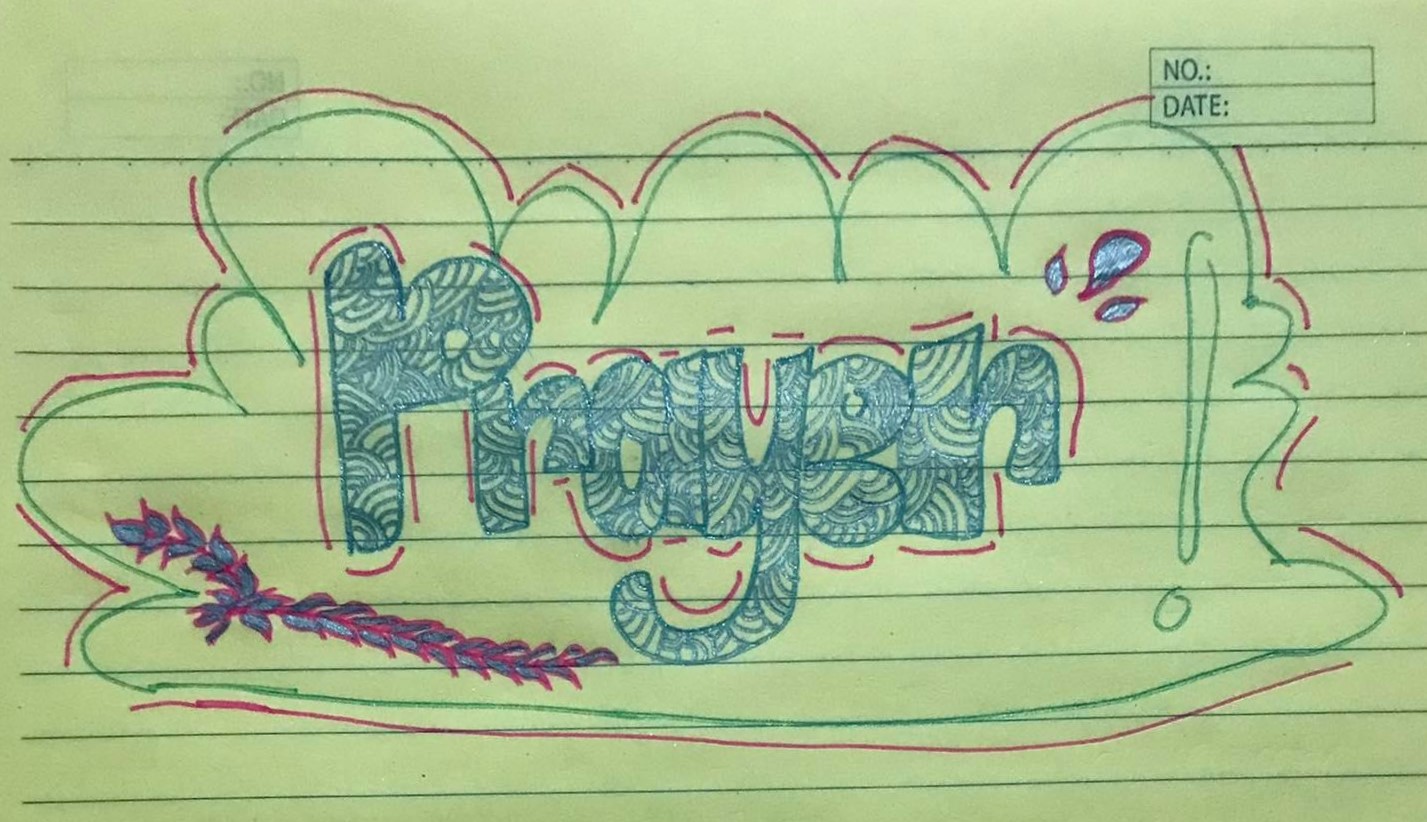 NO.:
DATE:
Prayer!